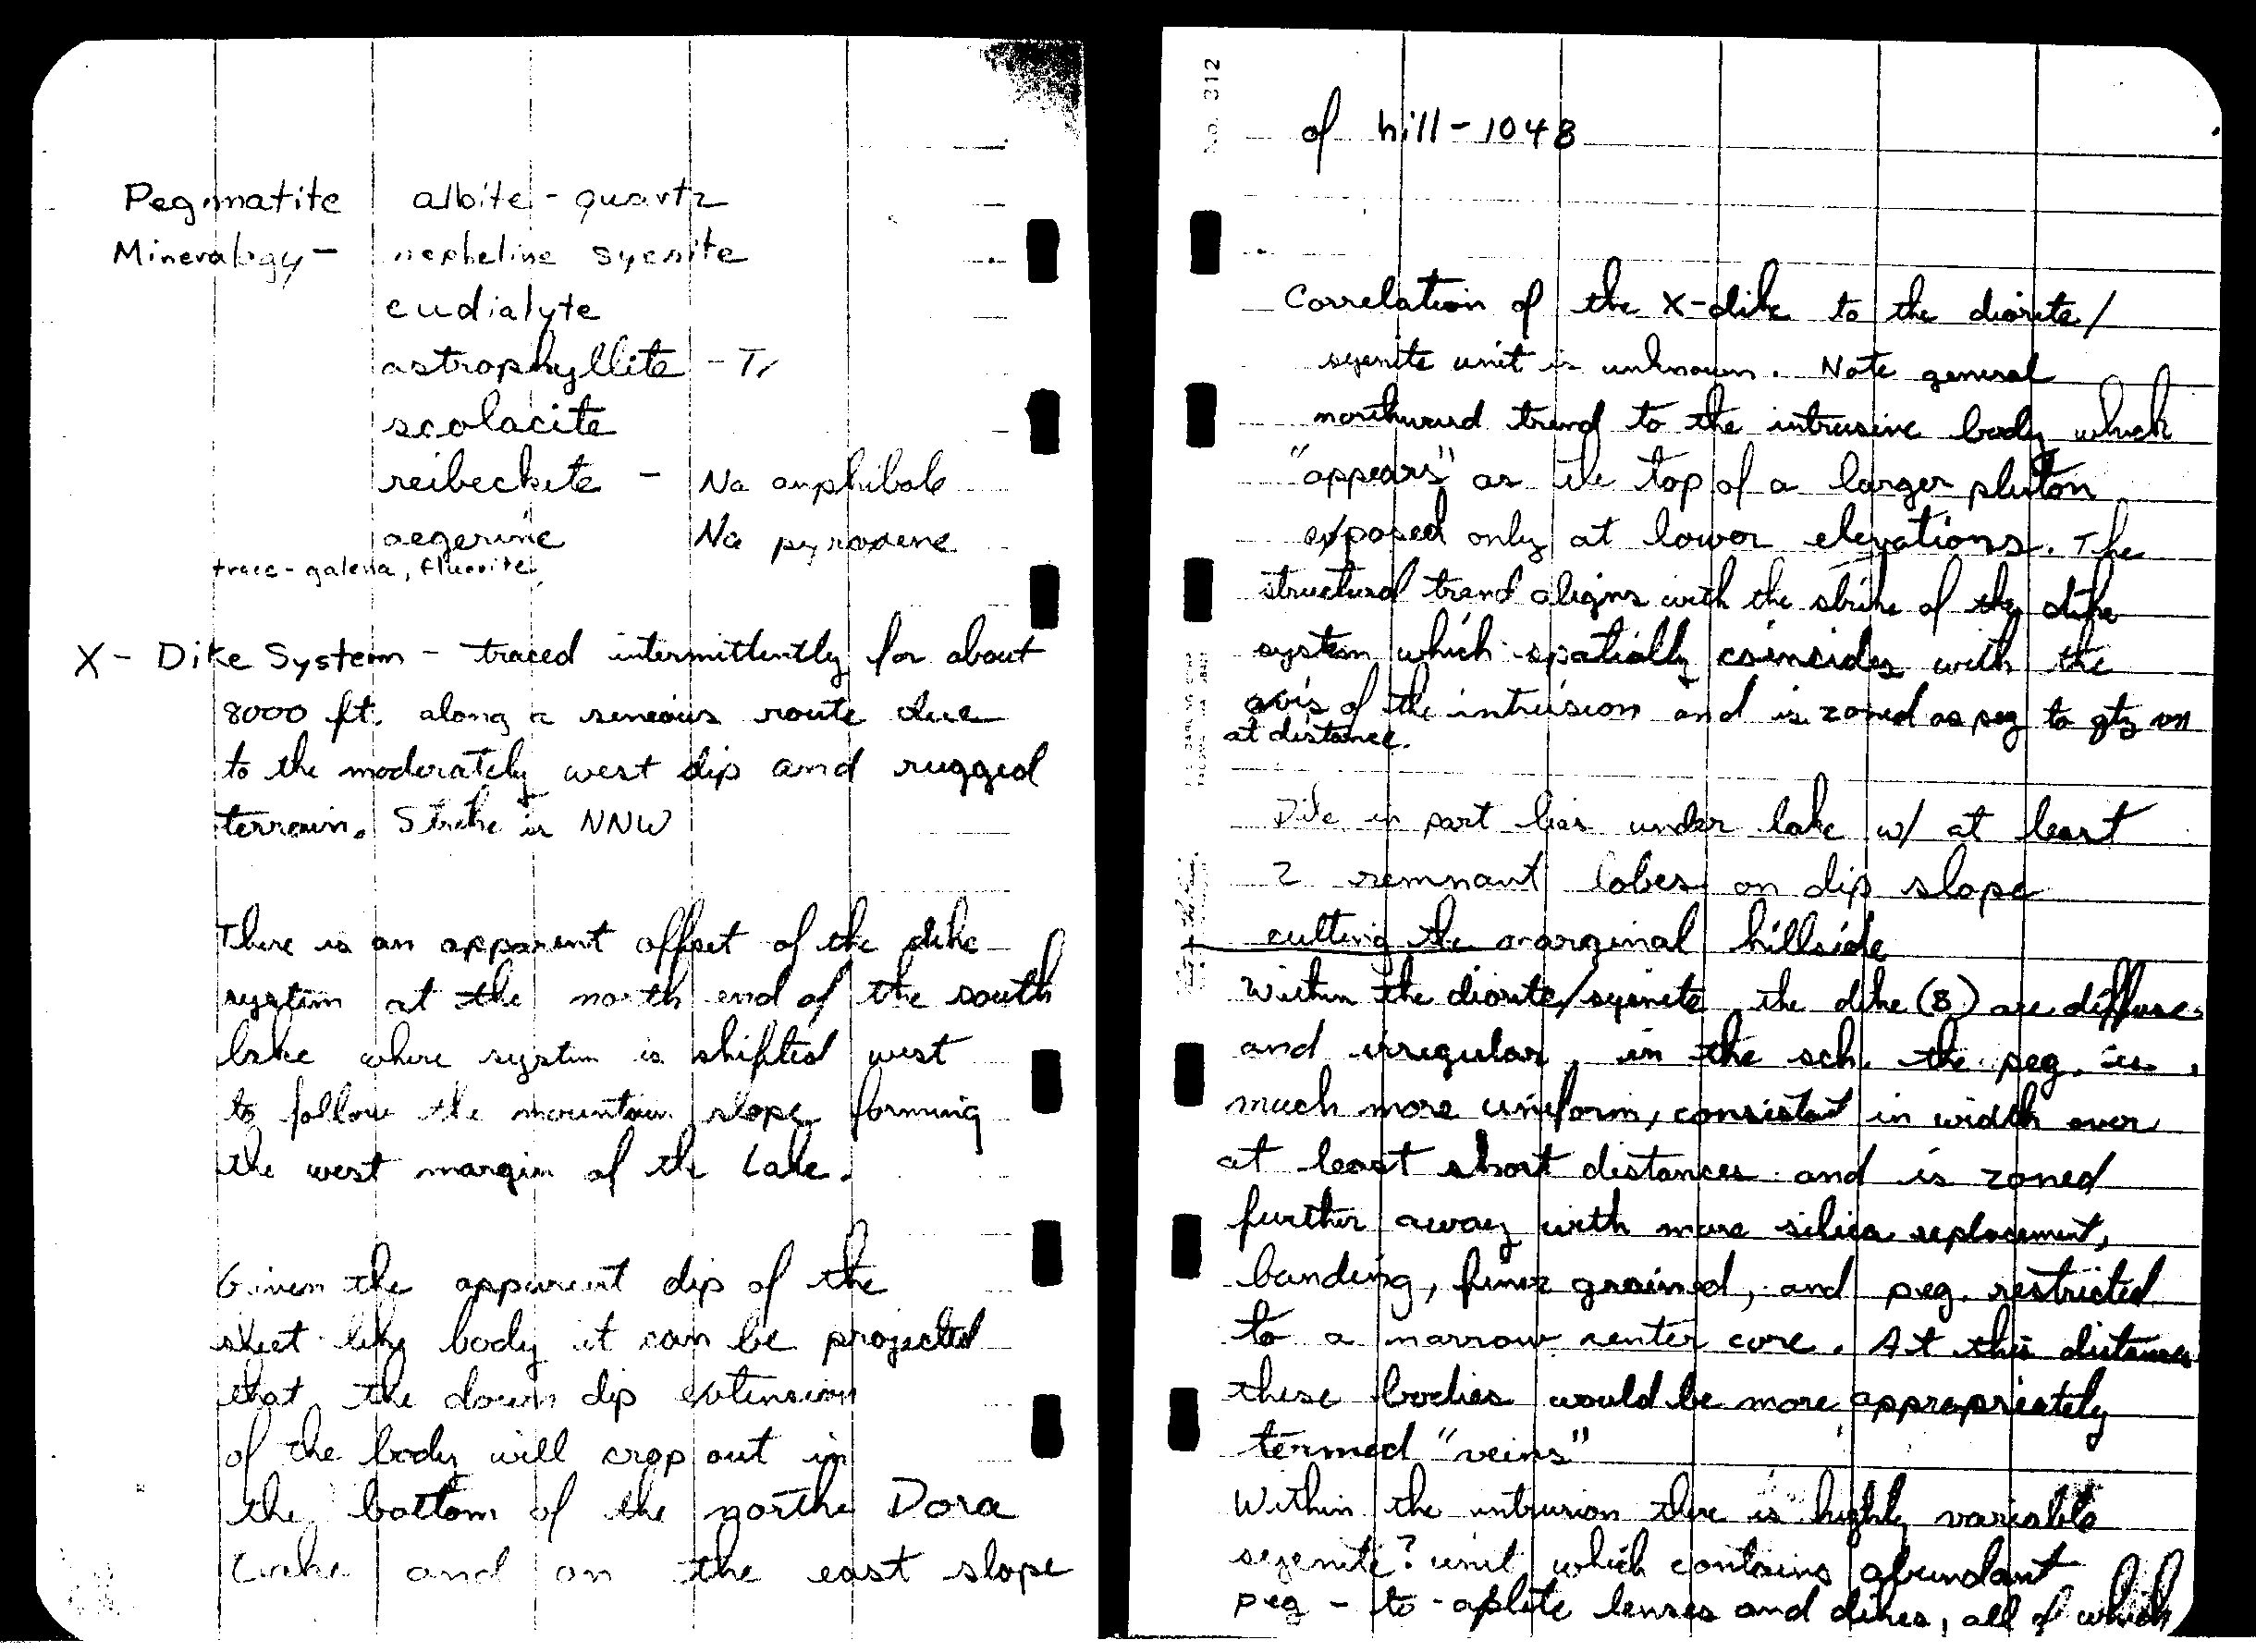 Pegmatite albite - quartz
Mineralogy - nepheline syenite
eudialyte
astrophyllite - Tr
scolacite
reibeckite - Na amphibole
aegerine Na pyroxene
trace - galena, fluorite
X - Dike System - traced intermittently for about
8000 ft. along a sineous route due
to the moderately west dip and rugged
terrain. Strike is NNW
There is an apparent offset of the dike
system at the north end of the south
lake where system is shifted west
to follow the mountain slope forming
the west margin of the Lake.
Given the apparent dip of the
sheet like body it can be projected
that the down dip extension
of the body will crop out in
the bottom of the northe Dora
Lake and on the east slope
No. 312
of hill - 1048
Correlation of the X-dike to the diorite/
syenite unit is unknown. Note general
northward trend to the intrusive body which
"appears" as the top of a larger pluton
exposed only at lower elevations. The
structural trend aligns with the strike of the dike
system which spatially coincides with the
axis of the intrusion and is zoned as peg to qtz vn
at distance.
Dike in part lies under lake w/ at least
2 remnant lobes on dip slope
cutting the marginal hillside
Within the diorite/syenite the dike (s) are diffuse
and irregular, in the sch. the peg. is
much more uniform, consistant in width over
at least short distances and is zoned
further away with more silica replacement,
banding, finer grained, and peg. restricted
to a narrow center core. At this distance
these bodies would be more appropriately
termed "veins"
Within the intrusion there is highly variable
syenite? unit which contains abundant
peg - to - aplite lenses and dikes, all of which